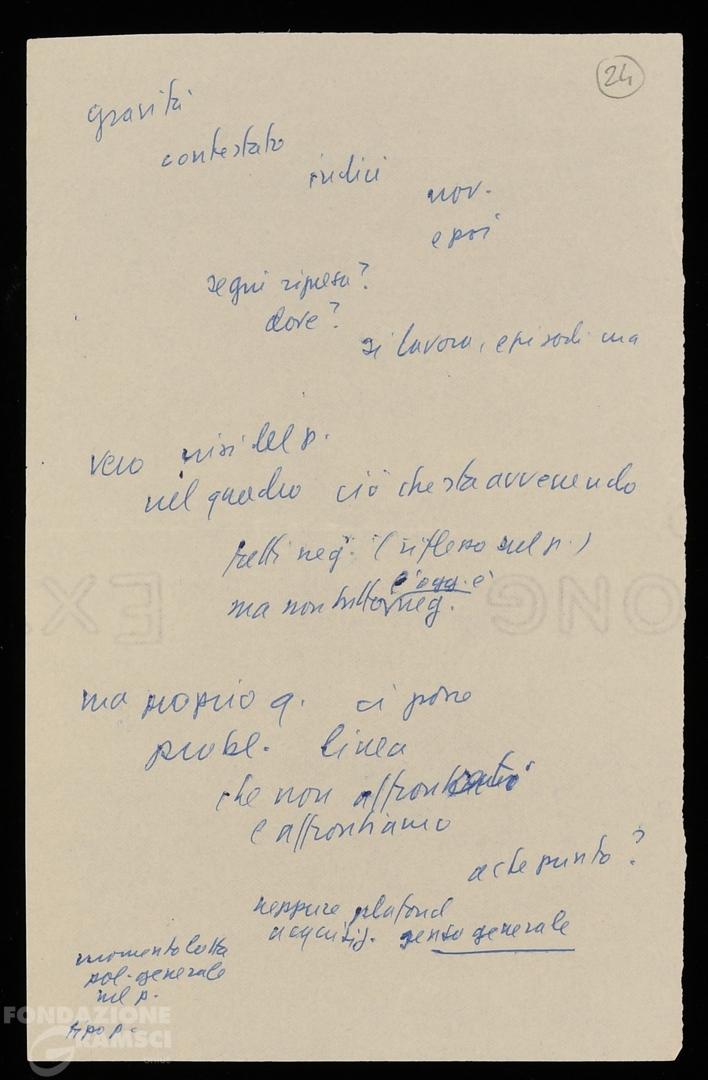 24
gravità
contestato
indici
nov.
e poi
segni ripresa?
dove?
si lavora, episodi ma
vero del p.
nel quadro ciò che sta avvenendo
neg. (riflesso nel p.)
ogg. è
ma non tutto neg.
ma proprio q. ci pone
probl. linea
che non
e affrontiamo
a che punto?
neppure plafond
acquisiz. senso generale
momento lotta
pol. generale
nel p.
tipo p.
ONG EX
FONDAZIONE
GRAMSCI
onlus